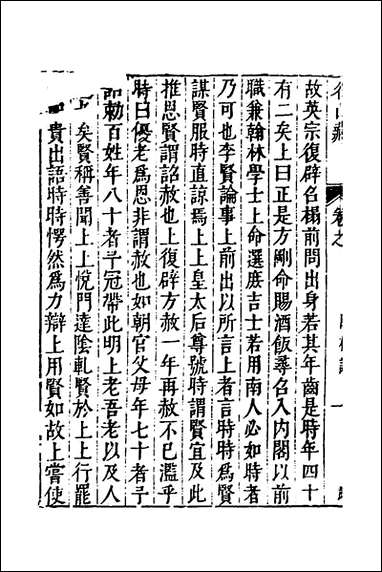 名山藏 卷之 臣林記 一
故英宗復辟名榻前問出身若其年齒是時年四十
有二矣上曰正是方剛命賜酒飯尋名入內閣以前
職兼翰林學士上命選庶吉士若用南人必如時者
乃可也李賢論事上前出以所言上者言時時爲賢
謀賢服時直諒焉上上皇太后尊號時謂賢宜及此
推恩賢謂詔赦也上復辟方赦一年再赦不已濫乎
時曰優老爲恩非謂赦也如朝官父母年七十者子
勅百姓年八十者子冠帶此明上老吾老以及人
矣賢稱善聞上上悅門達陰軋賢於上上行罷
貴出語時時愕然爲力辯上用賢如故上嘗使